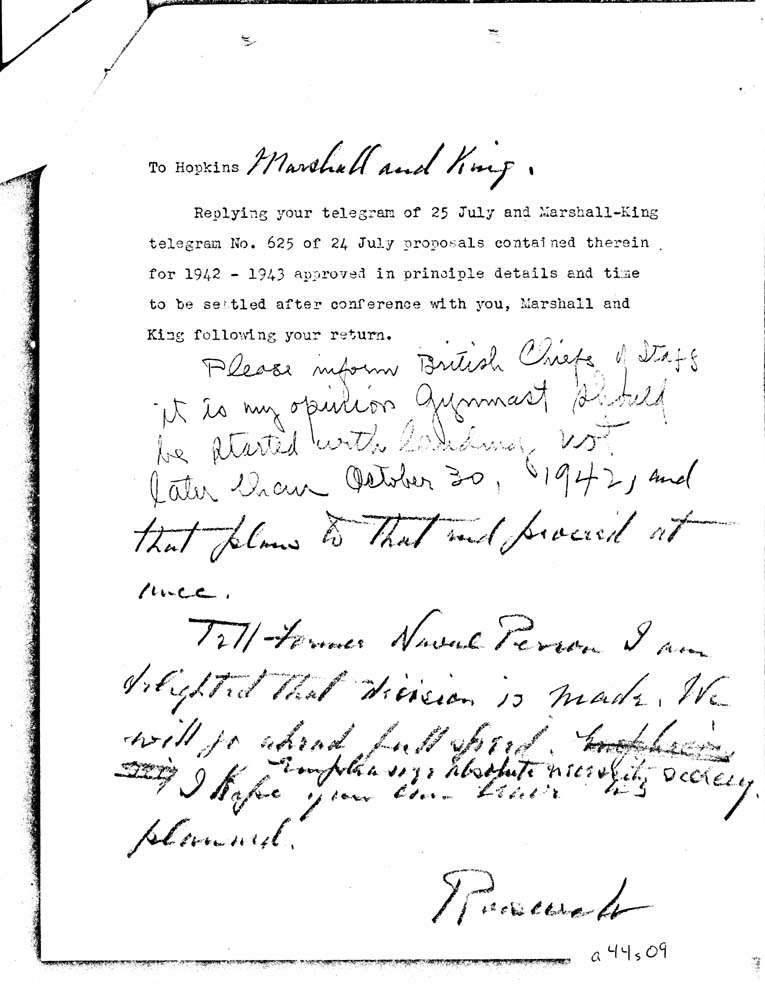 To Hopkins Marshall and King.
Replying your telegram of 25 July and Marshall-King
telegram No. 625 of 24 July proposals contained therein
for 1942 - 1943 approved in principle details and time
to be settled after conference with you, Marshall and
King following your return.
Please inform British Chiefs of Staff
it is my opinion Gymnast should
be started with landing not
later than October 30, 1942, and
that plans to that end proceed at
once.
Tell Former Naval Person I am
delighted that decision is made. We
will go ahead full speed.
Emphasize absolute necessity secrecy.
I hope you can leave as
planned.
Roosevelt
a44s09